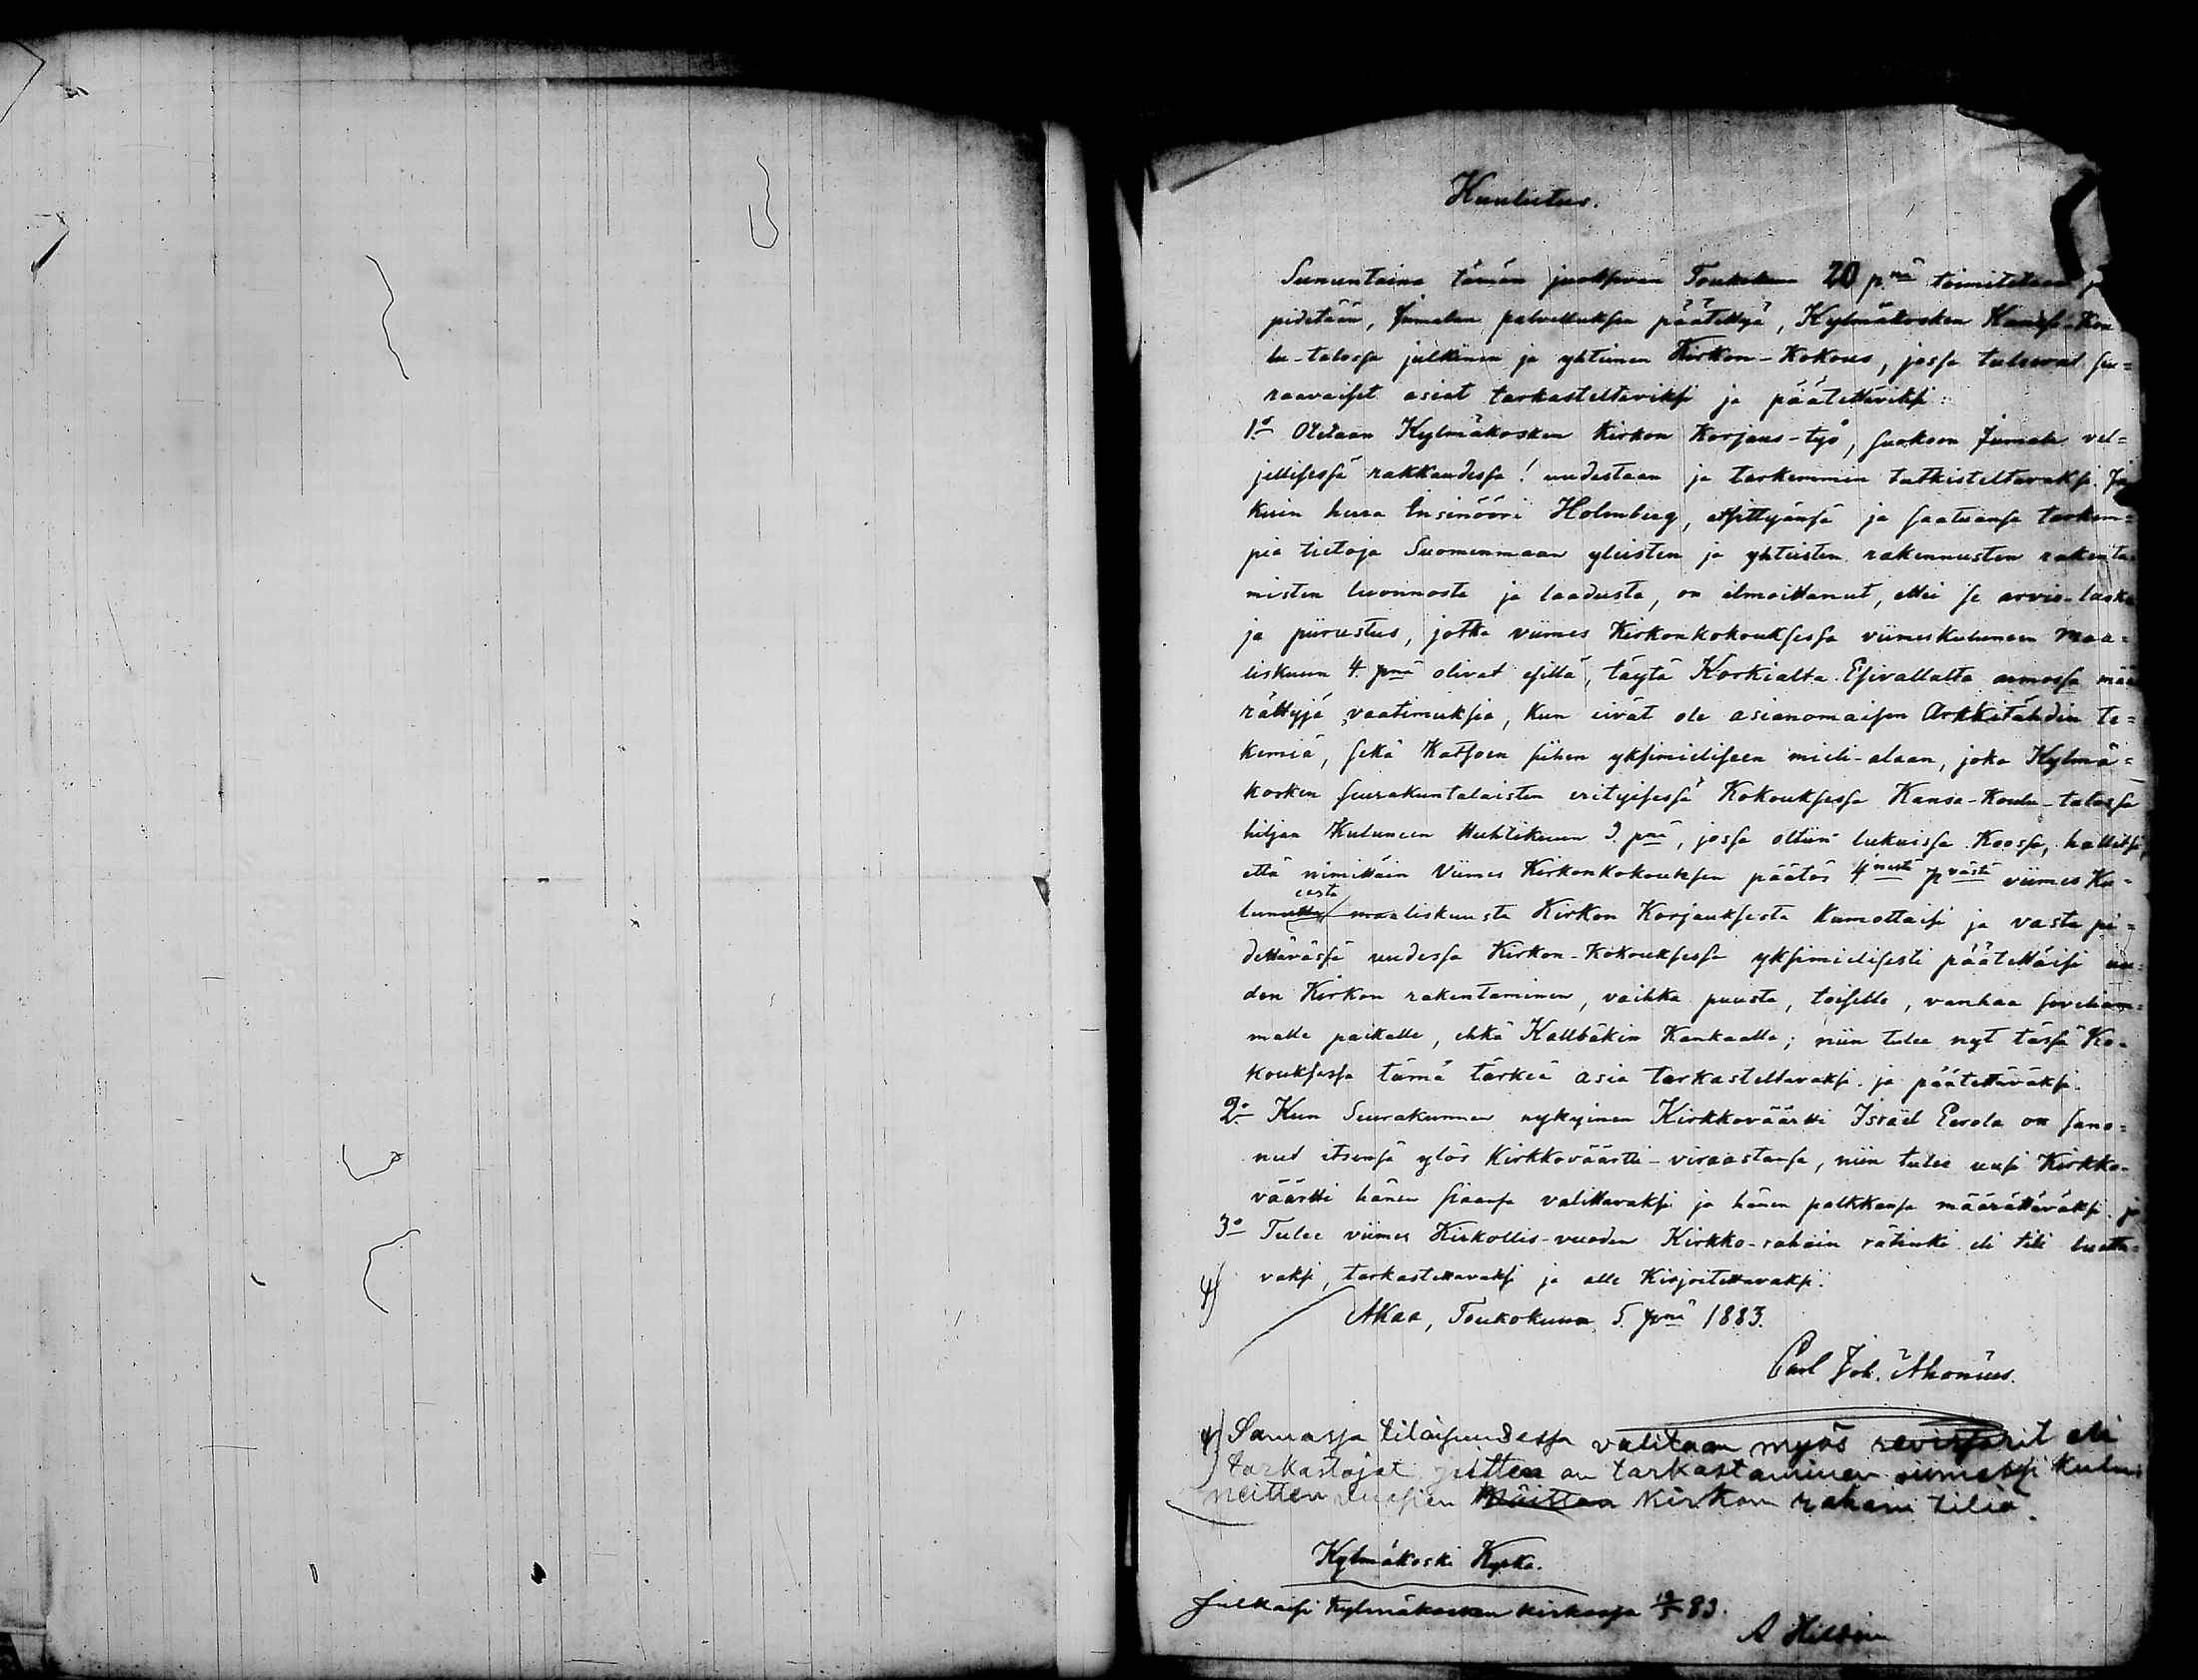 Kuulutus.
Sunnuntaina tämän juoksevan Toukokuun 20 p:nä toimitetaan ja
pidetään, Jumalan palvelluksen päätettyä, Kylmäkosken Kansa-Kou-
lu-talossa julkinen ja yhteinen Kirkon-Kokous, jossa tulevat seu=
raavaiset asiat tarkasteltaviksi ja päätettäviksi:
1:o Otetaan Kylmäkosken Kirkon Korjaus-työ, suokoon Jumala vel=
jellisessä rakkaudessa! uudestaan ja tarkemmin tutkisteltavaksi. Ja
kuin herra Insinööri Holmberg, etsittyänsä ja saatuansa tarkem=
pia tietoja Suomenmaan yleisten ja yhteisten rakennusten rakenta=
misten luonnosta ja laadusta, on ilmoittanut, ettei se arvio-lasku
ja piirustus, jotka viimes Kirkonkokouksessa viimeskuluneen Maa=
liskuun 4. p:nä olivat esillä, täytä Korkialta Esivallalta armossa mää
rättyjä vaatimuksia, Kun eivät ole asianomaisen Arkkitähdin te=
kemiä, sekä Katsoen siihen yksimieliseen mieli-alaan, joka Kylmä=
kosken seurakuntalaisten erityisessä Kokouksessa Kansa-Koulu-talossa
hiljan Kuluneen Huhtikuun 3. p:nä, jossa oltiin lukuissa Koossa, hallitsi,
että nimittäin Viimes Kirkonkokouksen päätös 4:nestä p:västä viimes Ku=
eesta
lun maaliskuusta Kirkon Korjauksesta Kumottaisi ja vasta pi=
dettävässä uudessa Kirkon-Kokouksessa yksimielisesti päätettäisi uu=
den Kirkon rakentaminen, vaikka puusta, toiselle, vanhaa soveliam=
malle paikalle, ehkä Kallbäkin Kankaalle; niin tulee nyt tässä Ko=
kouksessa tämä tärkeä asia tarkasteltavaksi ja päätettäväksi.
2:o Kun Seurakunnan nykyinen Kirkkoväärtti Israel Eerola on sano=
nut itsensä ylös Kirkkoväärtti-virastansa, niin tulee uusi Kirkko-
väärtti hänen siaansa valittavaksi ja hänen palkkansa määrättäväksi. ja
3:o Tulee viimes Kirkollis-vuoden Kirkko-rahain rätinki eli tili luetta=
vaksi, tarkastettavaksi ja alle Kirjoitettavaksi.
4)
Akaa, Toukokuun 5. p:nä 1883.
Carl Joh. Ahonius.
4) Samassa tilaisuudessa valitaan myös revisorit eli
tarkastajat, joitten on tarkastaminen viimeksi kulu
neitten vuosien Kirkon rahain tiliä.
Kylmäkoski Kyrka.
Julkaisi Kylmäkosken kirkossa 13/5 83.
A Hildén